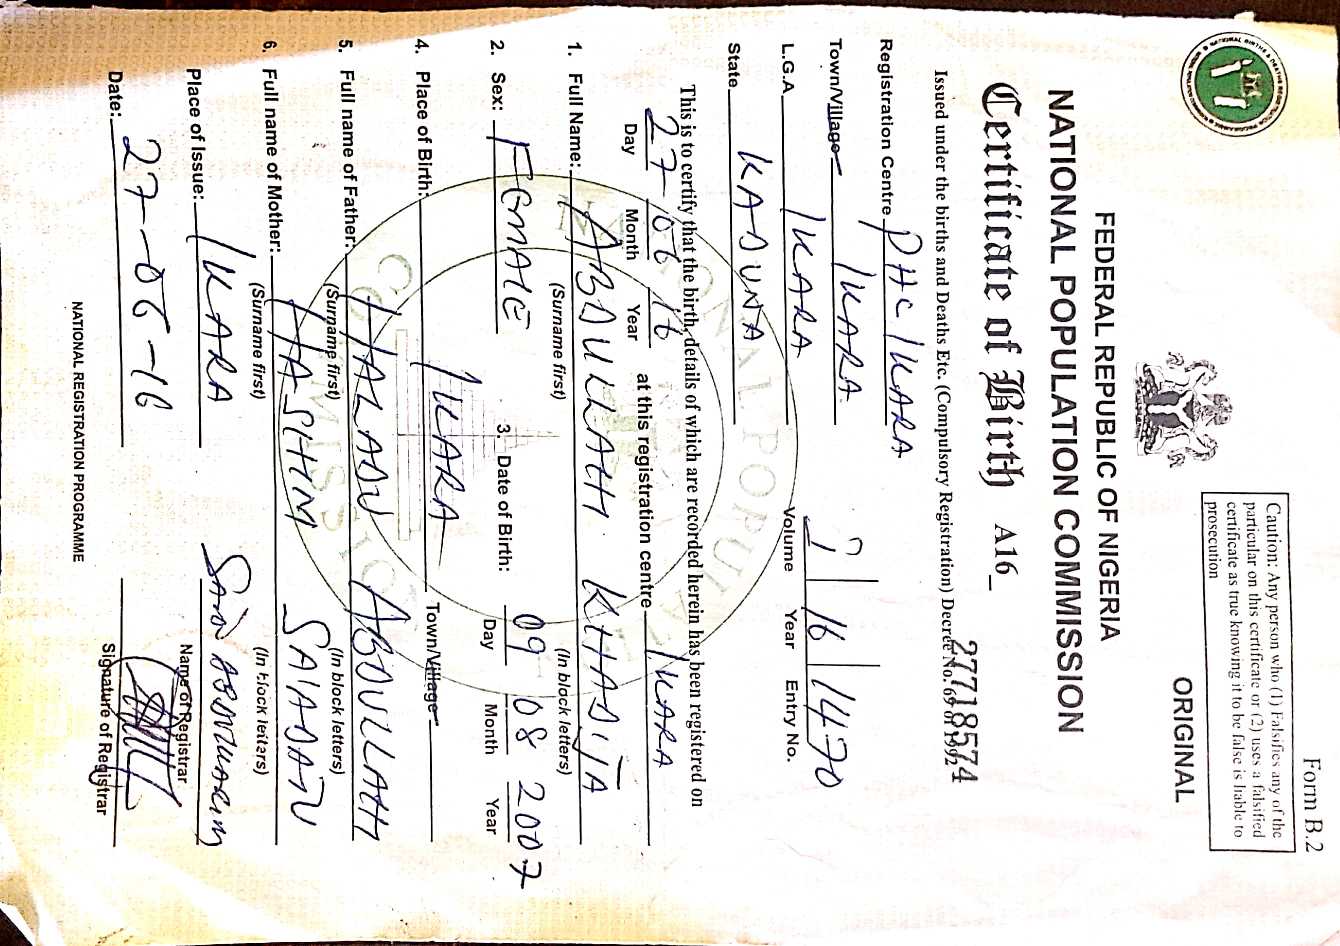 Form B.2
Caution: Any person who (1) Falsifies any of the
particular on this certificate or (2) uses a falsified
certificate as true knowing it to be false is liable to
prosecution
ORIGINAL
FEDERAL REPUBLIC OF NIGERIA
NATIONAL POPULATION COMMISSION
Certificate of Birth A16_ 27718574
Issued under the births and Deaths Etc. (Compulsory Registration) Decree No. 69 of 1992
Registration Centre PHC IKARA
Town/Village IKARA
L.G.A IKARA
State KADUNA
1 16 1470
Volume Year Entry No.
This is to certify that the birth, details of which are recorded herein has been registered on
27-06 16 at this registration centre IKARA
Day Month Year
1. Full Name: ABDULLAHI KHADIJA
(Surname first) (In block letters)
2. Sex: FEMALE 3. Date of Birth: 09 08 2007
Day Month Year
4. Place of Birth: IKARA Town/Village
5. Full name of Father: HALADU ABDULLAHI
(Surname first) (In block letters)
6. Full name of Mother: HASHIM SAIADATU
(Surname first) (In block letters)
Place of Issue: IKARA
Name of Registrar
Date: 27-06-16
Signature of Registrar
NATIONAL REGISTRATION PROGRAMME
NATIONAL POPULATION
COMMISSION